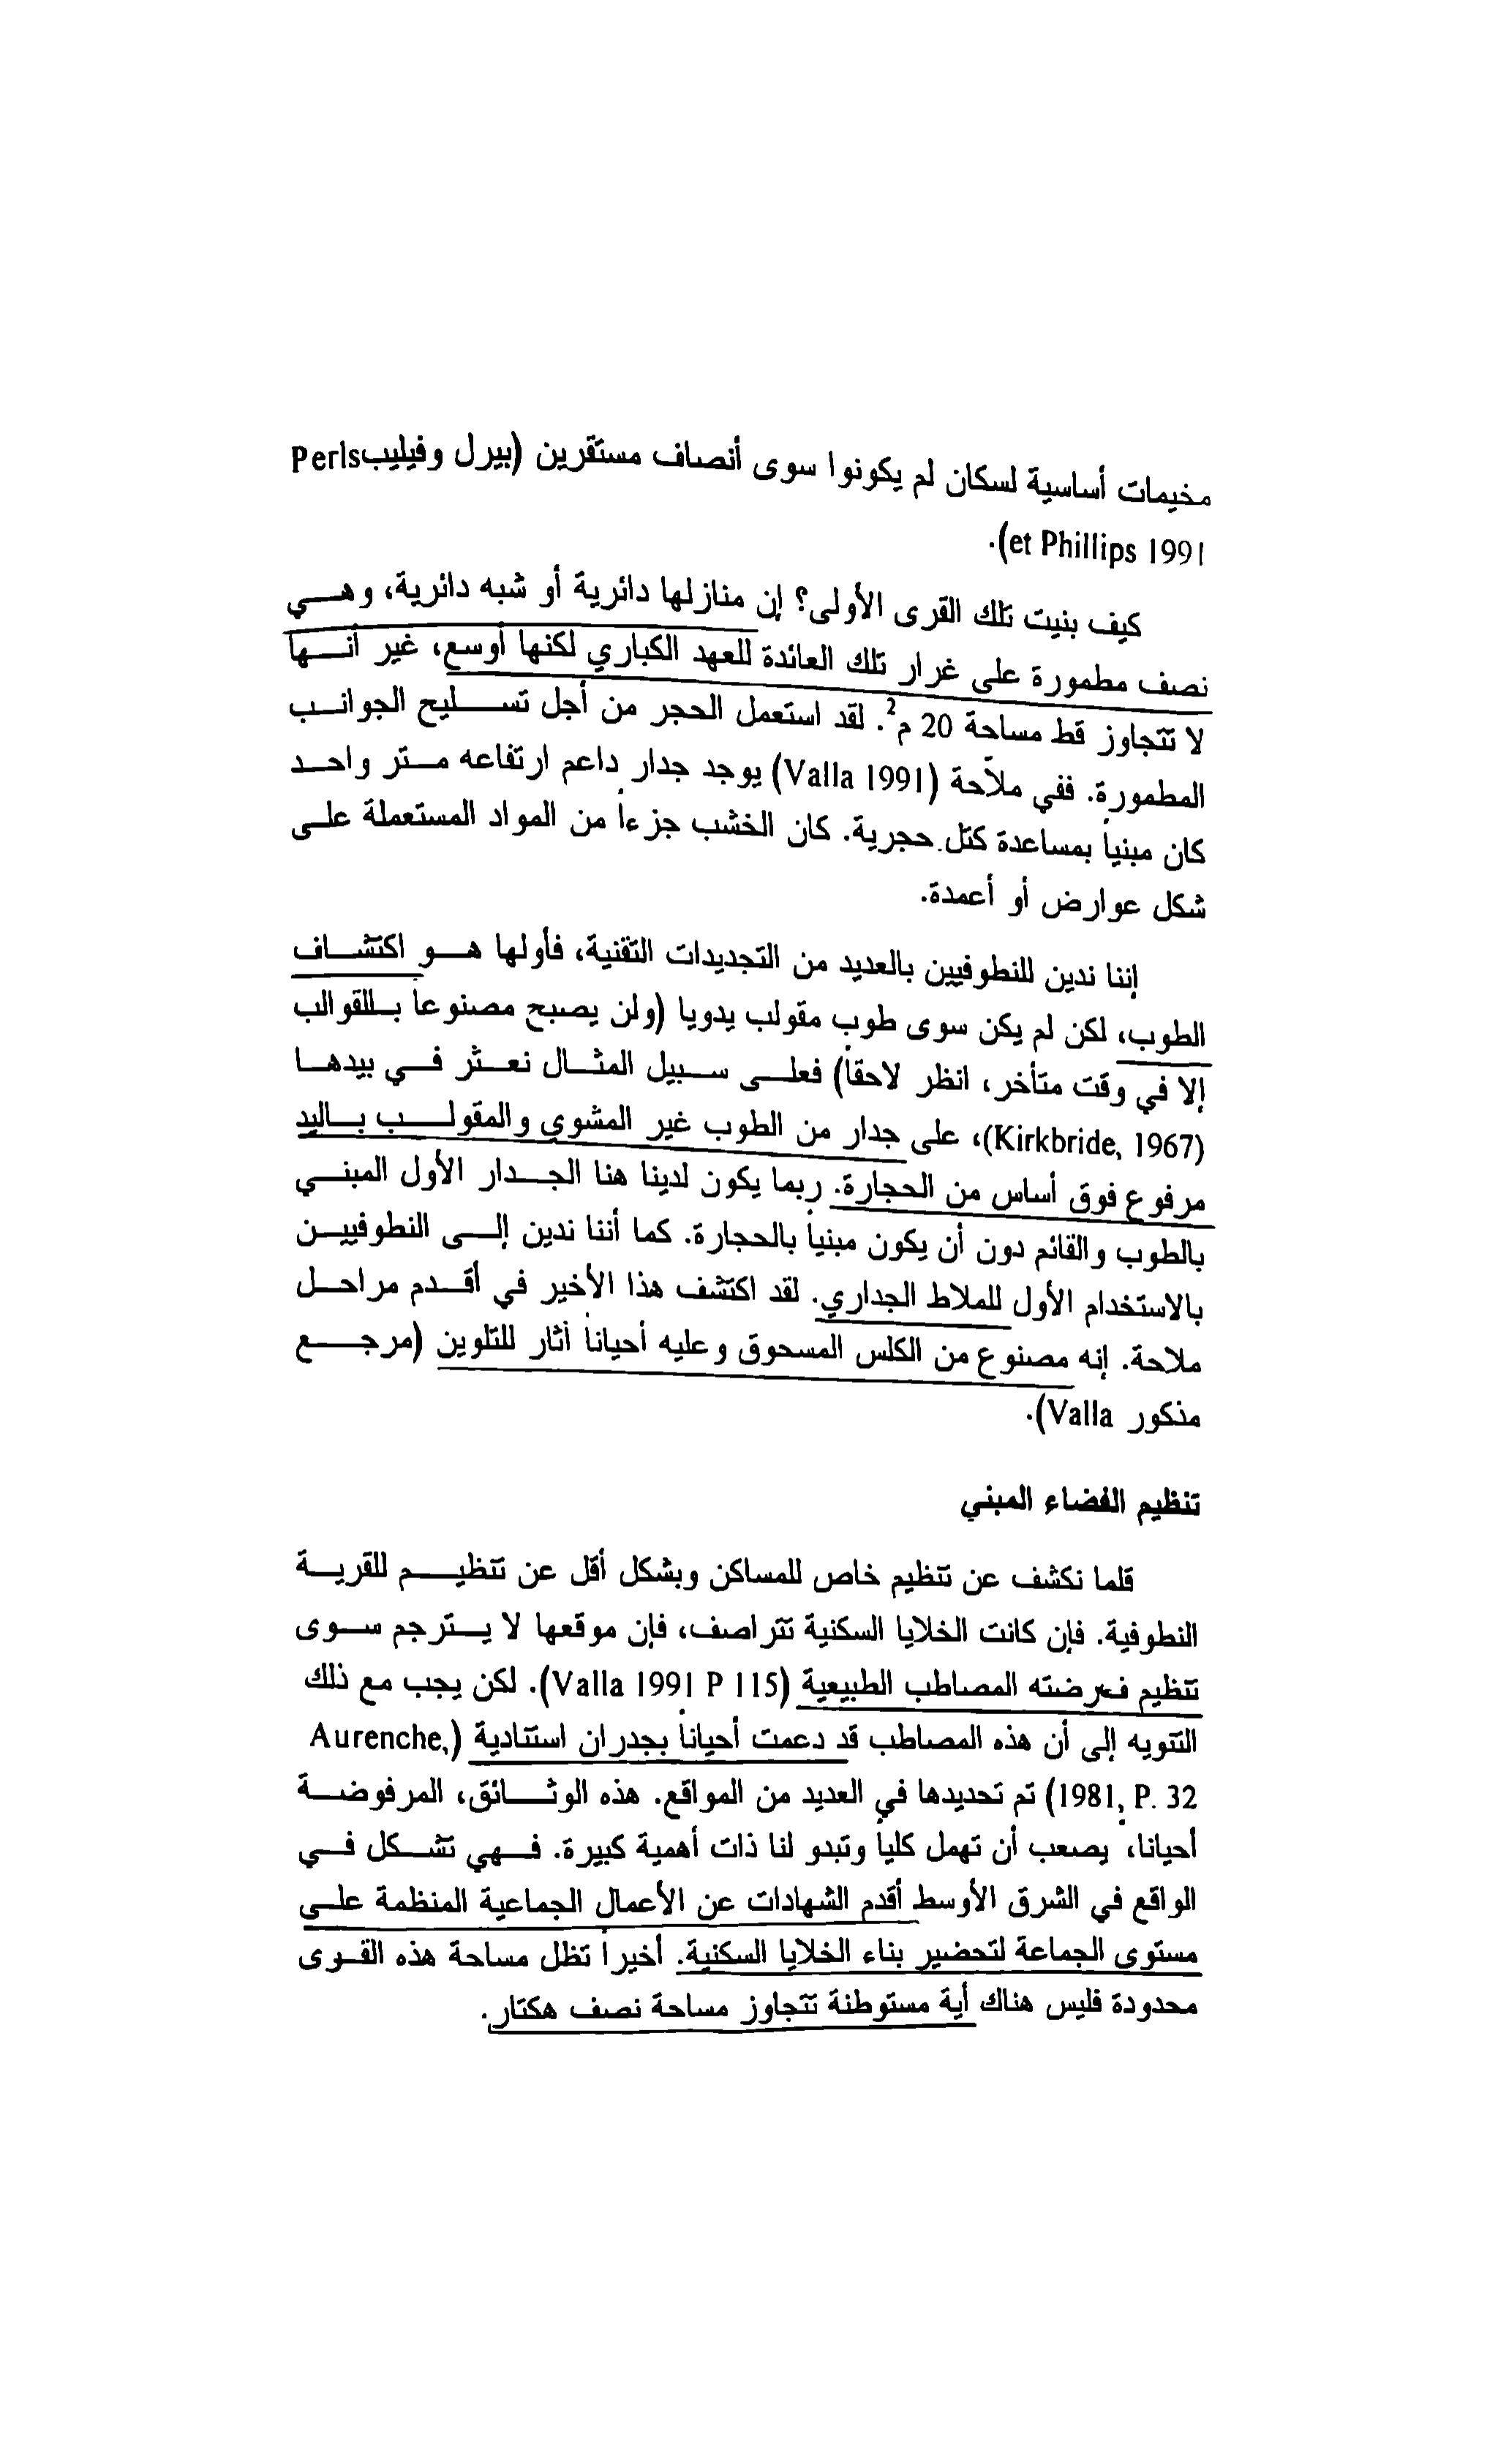 مخيمات أساسية لسكان لم يكونوا سوى أنصاف مستقرين (بيرل وفيليب Perls
et Phillips 1991).
كيف بنيت تلك القرى الأولى؟ إن منازلها دائرية أو شبه دائرية، وهي
نصف مطمورة على غرار تلك العائدة للعهد الكباري لكنها أوسع، غير أنها
لا تتجاوز قط مساحة 20 م². لقد استعمل الحجر من أجل تسليح الجوانب
المطمورة. ففي ملاّحة (Valla 1991) يوجد جدار داعم ارتفاعه متر واحد
كان مبنياً بمساعدة كتل حجرية. كان الخشب جزءاً من المواد المستعملة على
شكل عوارض أو أعمدة.
إننا ندين للنطوفيين بالعديد من التجديدات التقنية، فأولها هو اكتشاف
الطوب، لكن لم يكن سوى طوب مقولب يدويا (ولن يصبح مصنوعاً بالقوالب
إلا في وقت متأخر، انظر لاحقاً) فعلى سبيل المثال نعثر في بيدها
(Kirkbride, 1967)، على جدار من الطوب غير المشوي والمقولب باليد
مرفوع فوق أساس من الحجارة. ربما يكون لدينا هنا الجدار الأول المبني
بالطوب والقائم دون أن يكون مبنياً بالحجارة. كما أننا ندين إلى النطوفيين
بالاستخدام الأول للملاط الجداري. لقد اكتشف هذا الأخير في أقدم مراحل
ملاحة. إنه مصنوع من الكلس المسحوق وعليه أحياناً آثار للتلوين (مرجع
مذكور Valla).
تنظيم الفضاء المبني
قلما نكشف عن تنظيم خاص للمساكن وبشكل أقل عن تنظيم للقرية
النطوفية. فإن كانت الخلايا السكنية تتراصف، فإن موقعها لا يترجم سوى
تنظيم فرضته المصاطب الطبيعية (Valla 1991 P 115). لكن يجب مع ذلك
التنويه إلى أن هذه المصاطب قد دعمت أحياناً بجدران استنادية (Aurenche,
1981, P. 32) تم تحديدها في العديد من المواقع. هذه الوثائق، المرفوضة
أحيانا، يصعب أن تهمل كلياً وتبدو لنا ذات أهمية كبيرة. فهي تشكل في
الواقع في الشرق الأوسط أقدم الشهادات عن الأعمال الجماعية المنظمة على
مستوى الجماعة لتحضير بناء الخلايا السكنية. أخيراً تظل مساحة هذه القوى
محدودة فليس هناك أية مستوطنة تتجاوز مساحة نصف هكتار.